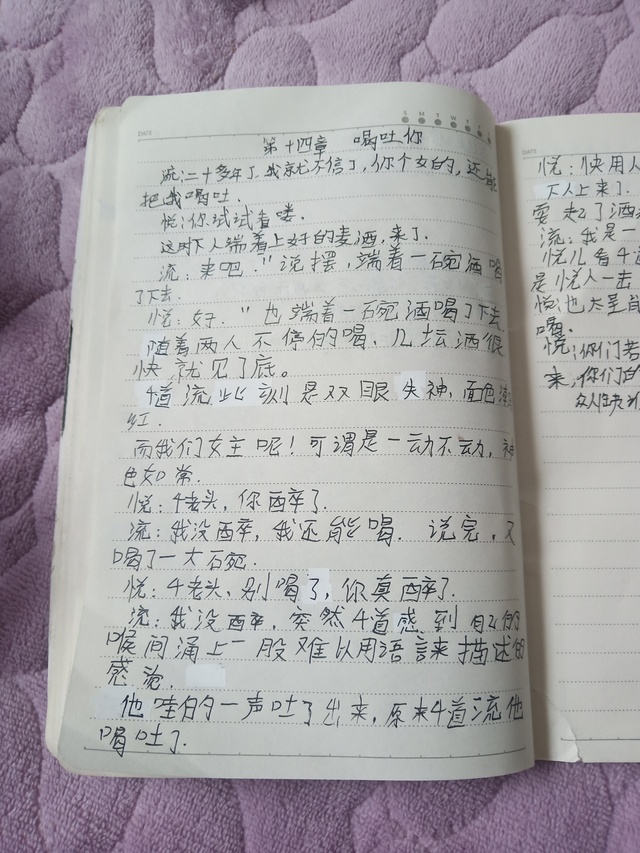 DATE
第十四章 喝吐你
流:二十多年了,我就不信了,你个女的,还能
把我喝吐.
悦:你试试看喽.
这时下人端着上好的麦酒,来了.
流:来吧."说摆,端着一碗酒喝
了下去
悦:好."也端着一碗酒喝了下去
随着两人不停的喝,几坛酒很
快就见了底。
4道流此刻是双眼失神,面色涨
红.
而我们女主呢!可谓是一动不动,神
色如常.
悦:4老头,你醉了.
流:我没醉,我还能喝.说完,又
喝了一大碗.
悦:4老头,别喝了,你真醉了.
流:我没醉,突然4道感到自己的
喉间涌上一股难以用语言来描述的
感觉.
他哇的一声吐了出来,原来4道流他
喝吐了.
S M T W T
DATE
悦:快用人
下人上来了.
要起了酒
流:我是一
悦儿看4道
是悦人一击
悦也太
喝.
悦:你们若
来,你们的